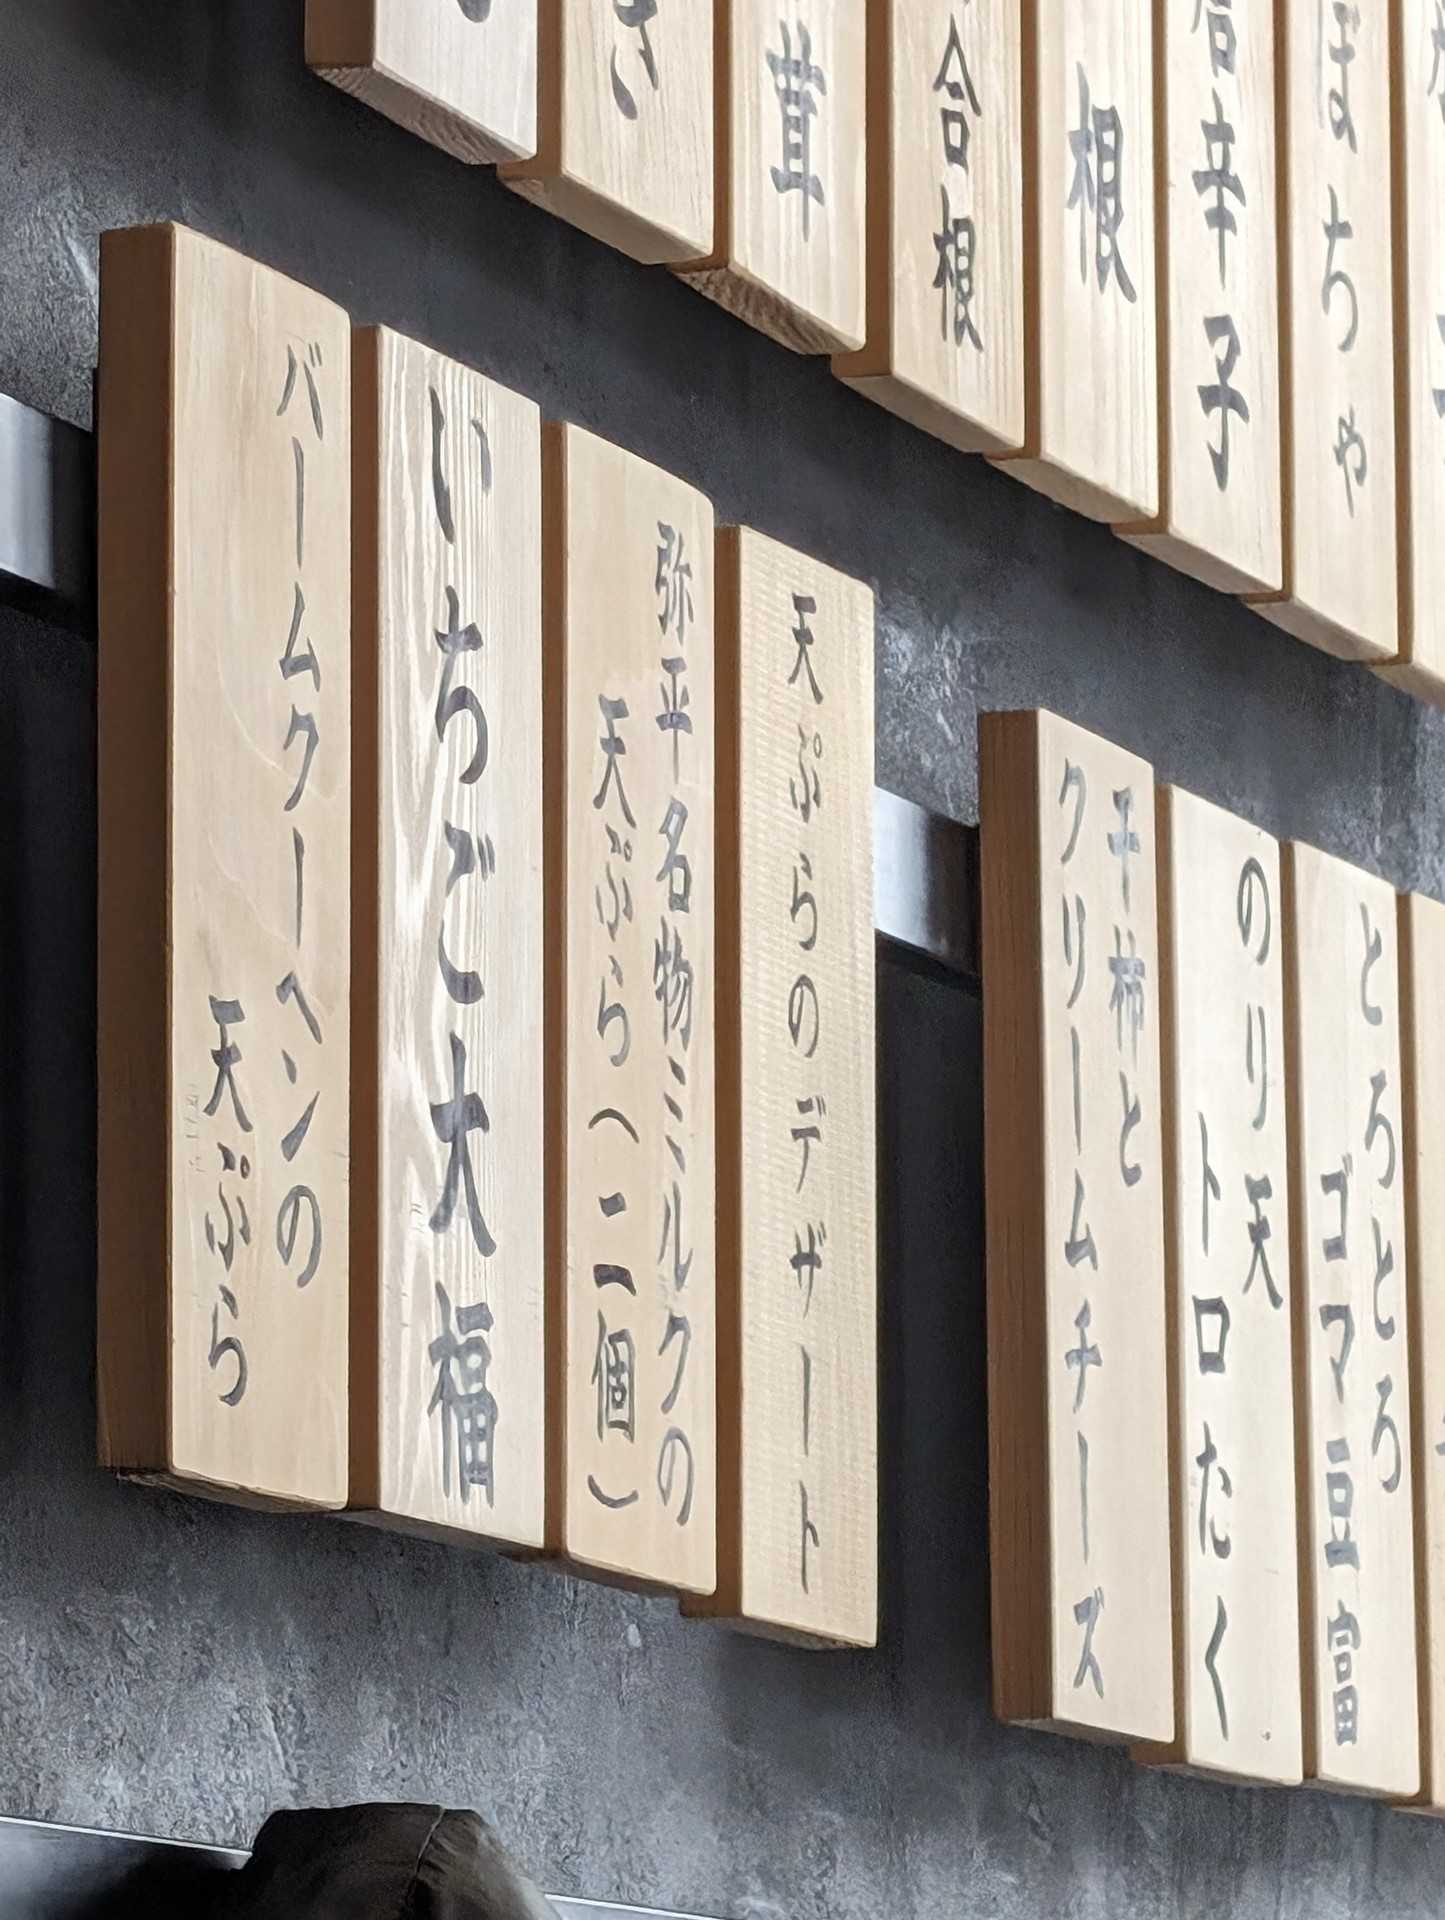 ぼちゃ
唐辛子
根
合根
茸
とろとろ
ゴマ豆富
のり天
トロたく
干柿と
クリームチーズ
天ぷらのデザート
弥平名物ミルクの
天ぷら(二個)
いちご大福
バームクーヘンの
天ぷら